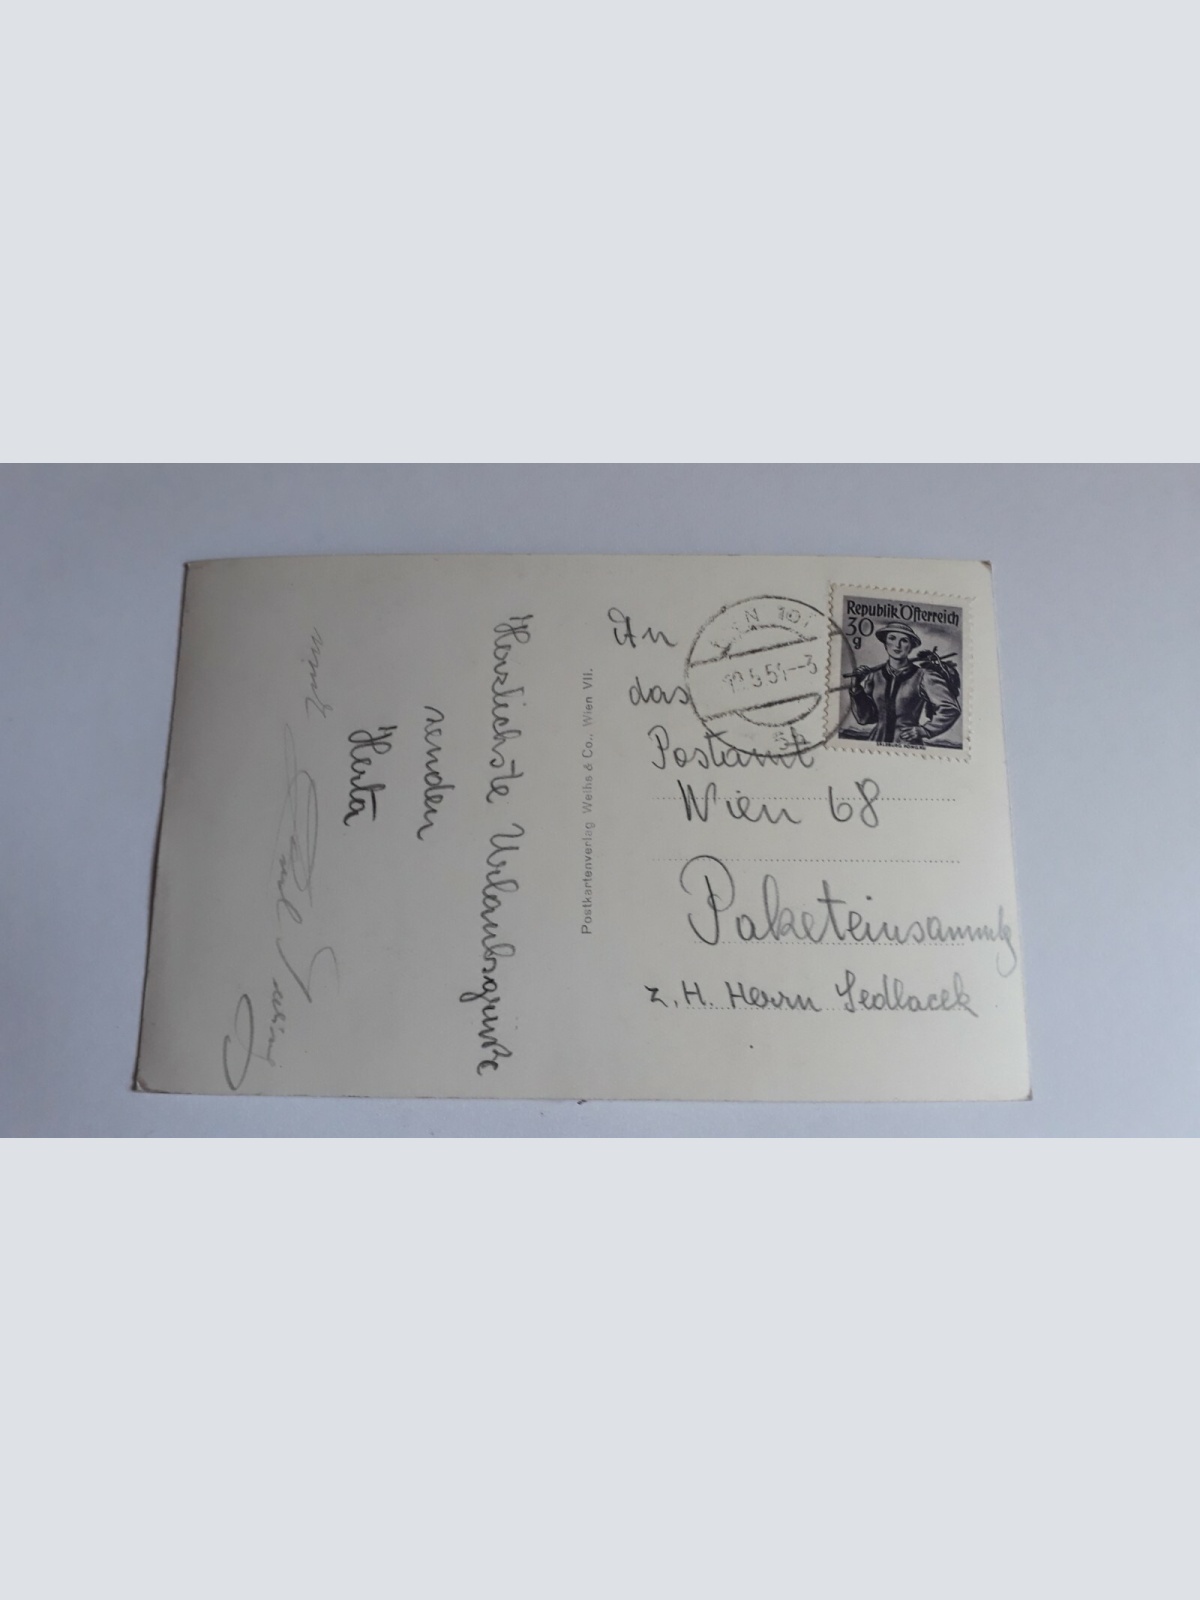 Herzlichste Urlaubsgrüße
senden
Herta
und
Postkartenverlag Weihs & Co., Wien VII.
Republik Österreich
30
g
WIEN 101
An
das
Postamt
Wien 68
Paketeinsammlg
z.H. Herrn Sedlacek